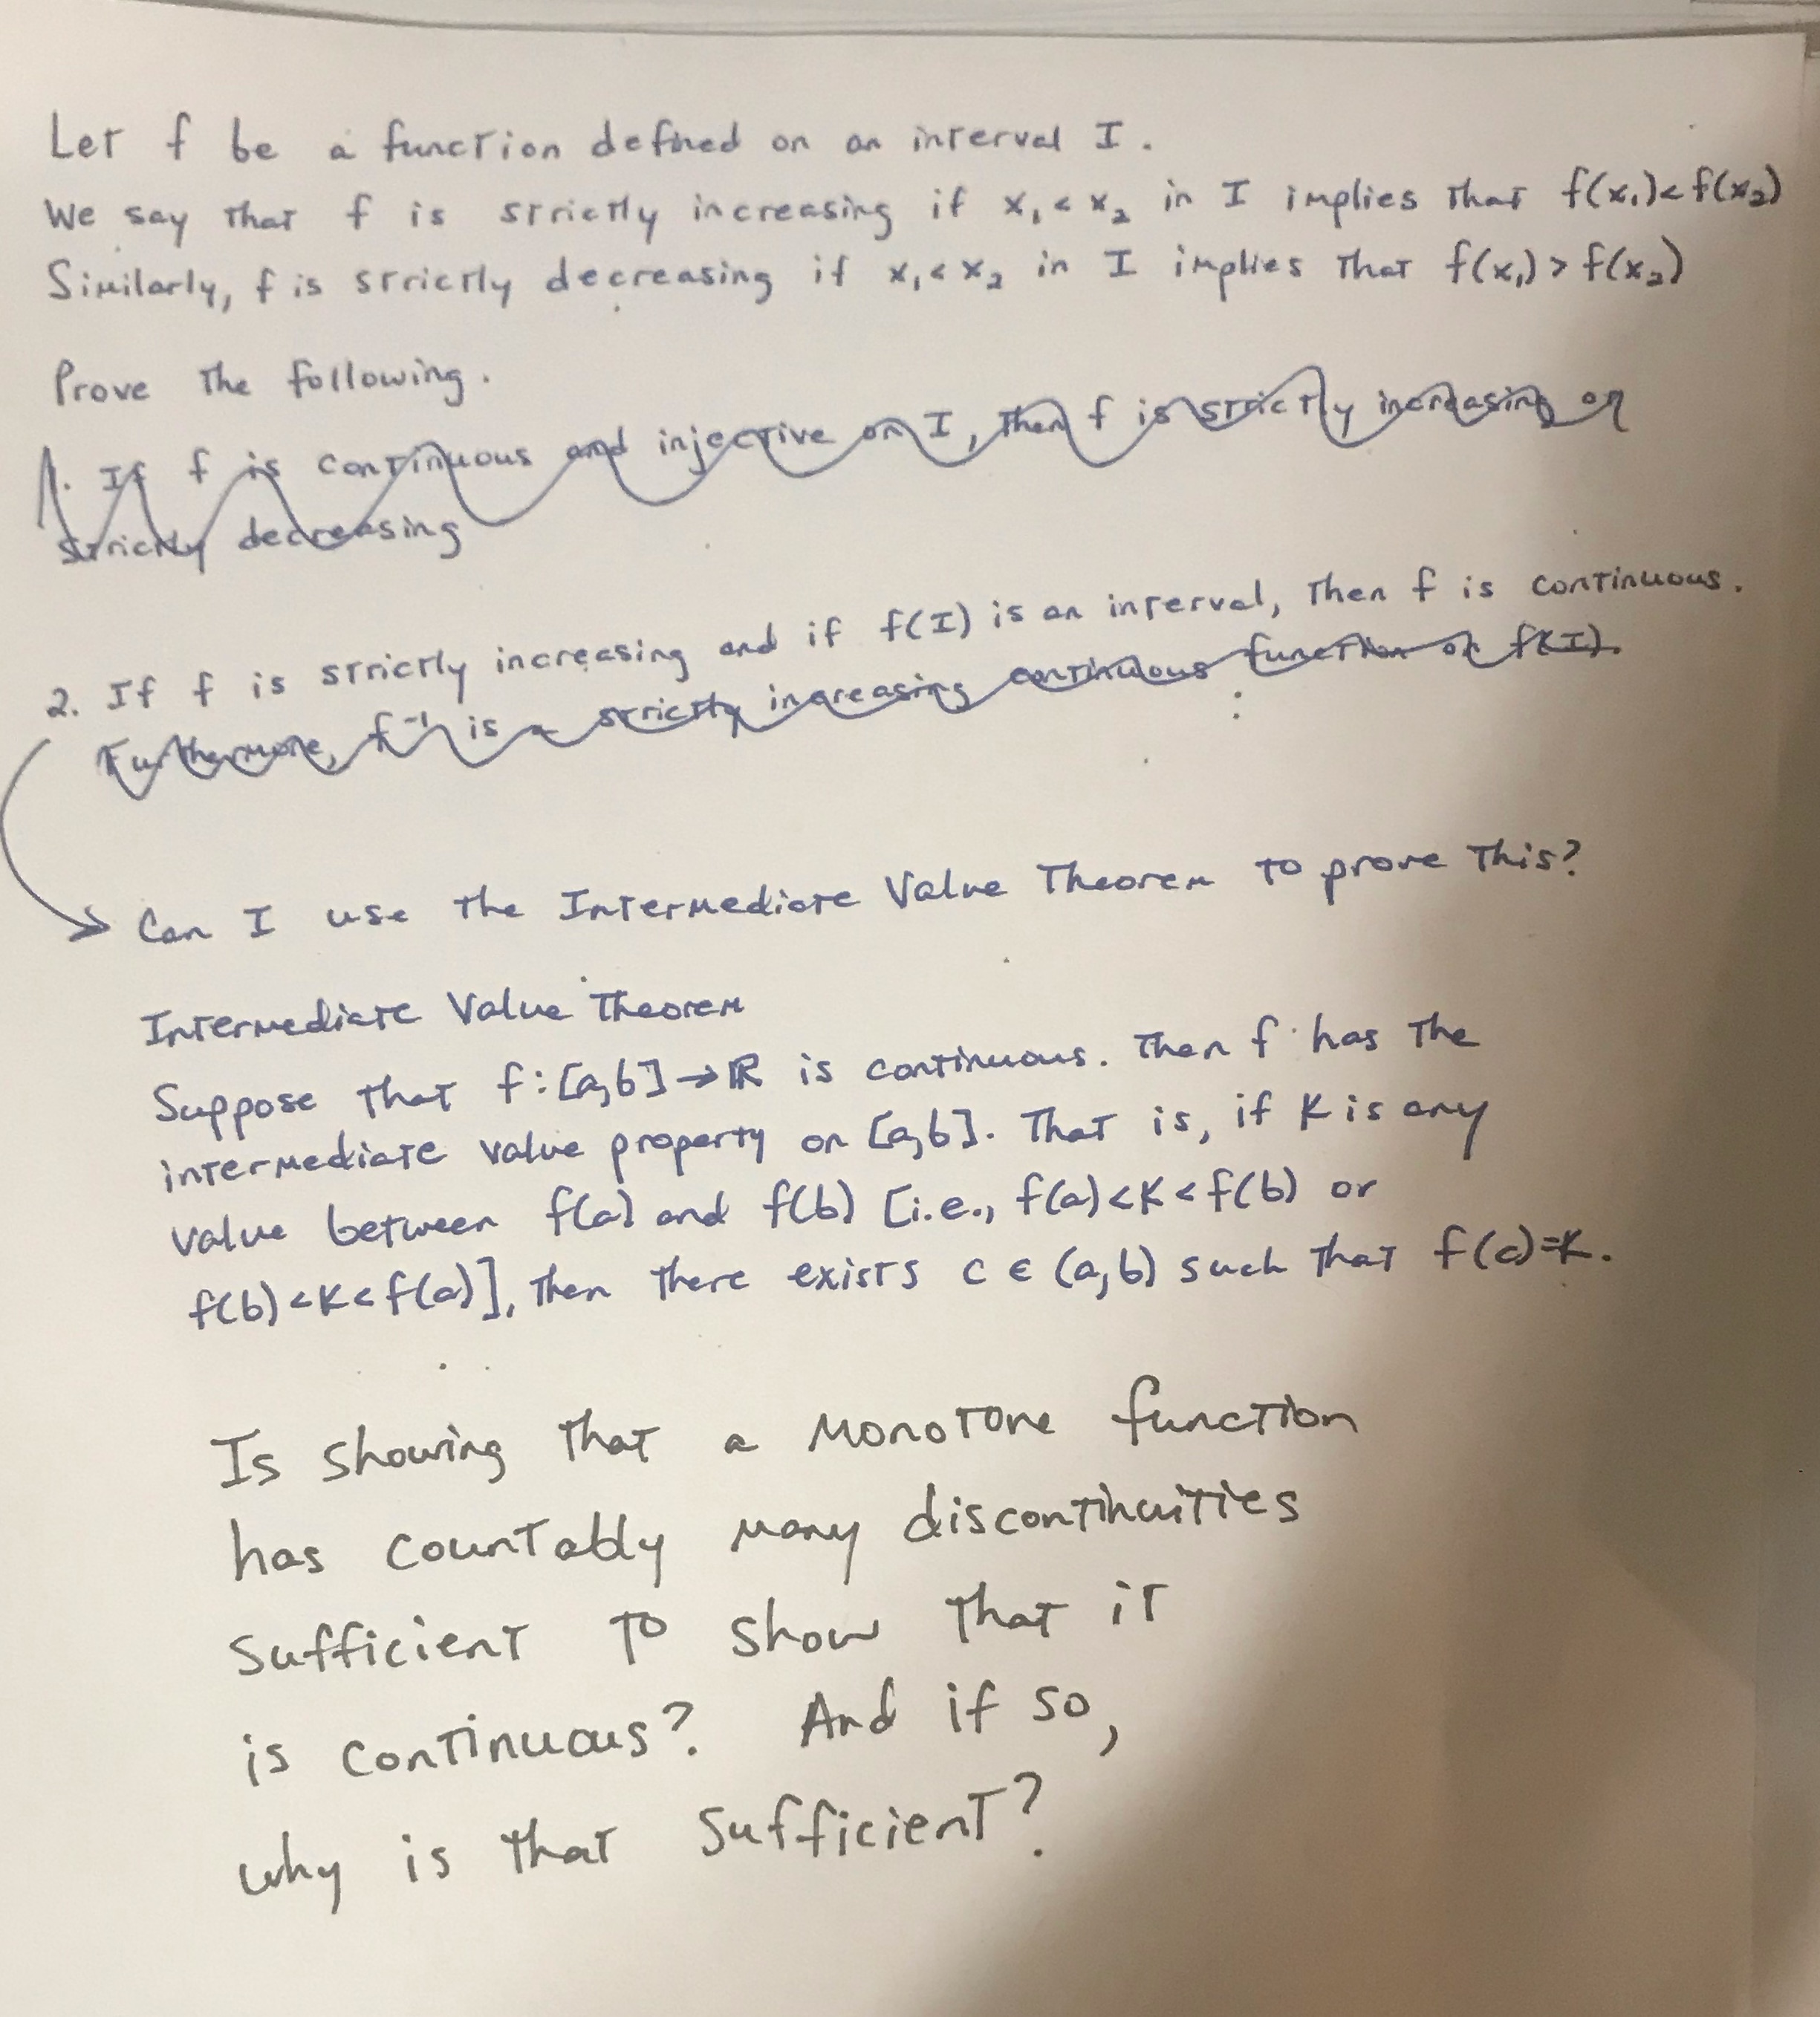 Let f be a function defined on an interval I.
We say that f is strictly increasing if x₁ < x₂ in I implies that f(x₁) < f(x₂)
Similarly, f is strictly decreasing if x₁ < x₂ in I implies that f(x₁) > f(x₂)
Prove the following.
1. If f is continuous and injective on I, then f is strictly increasing or
strictly decreasing
2. If f is strictly increasing and if f(I) is an interval, then f is continuous.
Furthermore, f⁻¹ is a strictly increasing continuous function on f(I).
Can I use the Intermediate Value Theorem to prove this?
Intermediate Value Theorem
Suppose that f:[a,b]→ℝ is continuous. Then f has the
intermediate value property on [a,b]. That is, if K is any
value between f(a) and f(b) [i.e., f(a)<K<f(b) or
f(b)<K<f(a)], then there exists c ∈ (a,b) such that f(c)=K.
Is showing that a monotone function
has countably many discontinuities
sufficient to show that it
is continuous? And if so,
why is that sufficient?